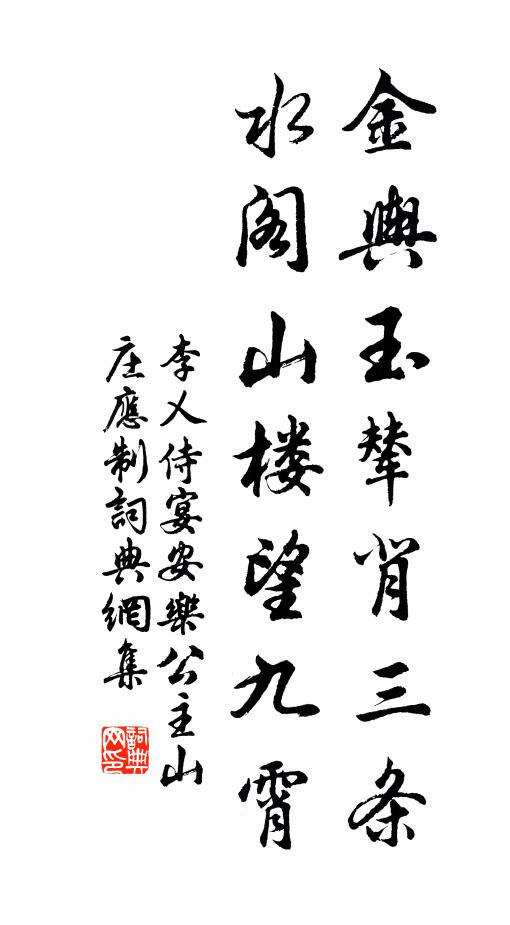 金輿玉輦背三条
水阁山楼望九霄
李乂侍宴安樂公主山
庄應制詞典網集
詞典网印